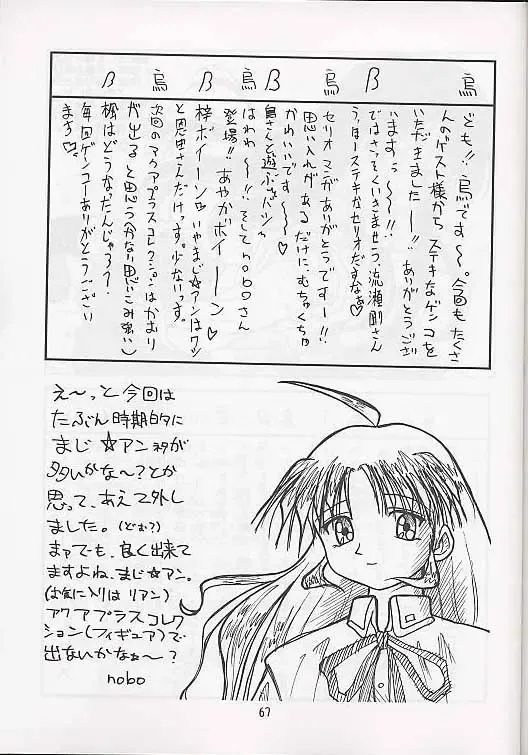 烏
β
烏
β
烏
β
烏
β
ども!!烏です〜。今回もたくさ
んのゲスト様からステキなゲンコを
いただきましたー!!ありがとうござ
いますぅ〜!!
ではさっそくいきませう、流瀬剛さん
うっほーステキなセリオだすなぁ♡
セリオマンガありがとうですー!!
思い入れがあるだけにむちゃくちゃ
かわいいです〜〜♡
島さんと遊ぶさバシャ
はわわ〜!!そしてnoboさん
登場!!あやかボイーン
梓ボイーン♡いやまじ☆アンはワシ
と恩田さんだけっす。少ないっす。
次回のアクアプラスコレクションはかおり
が出ると思う分ない思いこみ強い)
楓はどうなったんじゃろ?
毎回ゲンコーありがとうござい
ます♡
え〜っと今回は
たぶん時期的に
まじ☆アンネタが
多いかな〜?とか
思って、あえて外し
ました。(どお?)
まァでも、良く出来て
ますよね、まじ☆アン。
(お気に入りはリアン)
アクアプラスコレク
ション(フィギュア)で
出ないかなぁ〜?
nobo
67